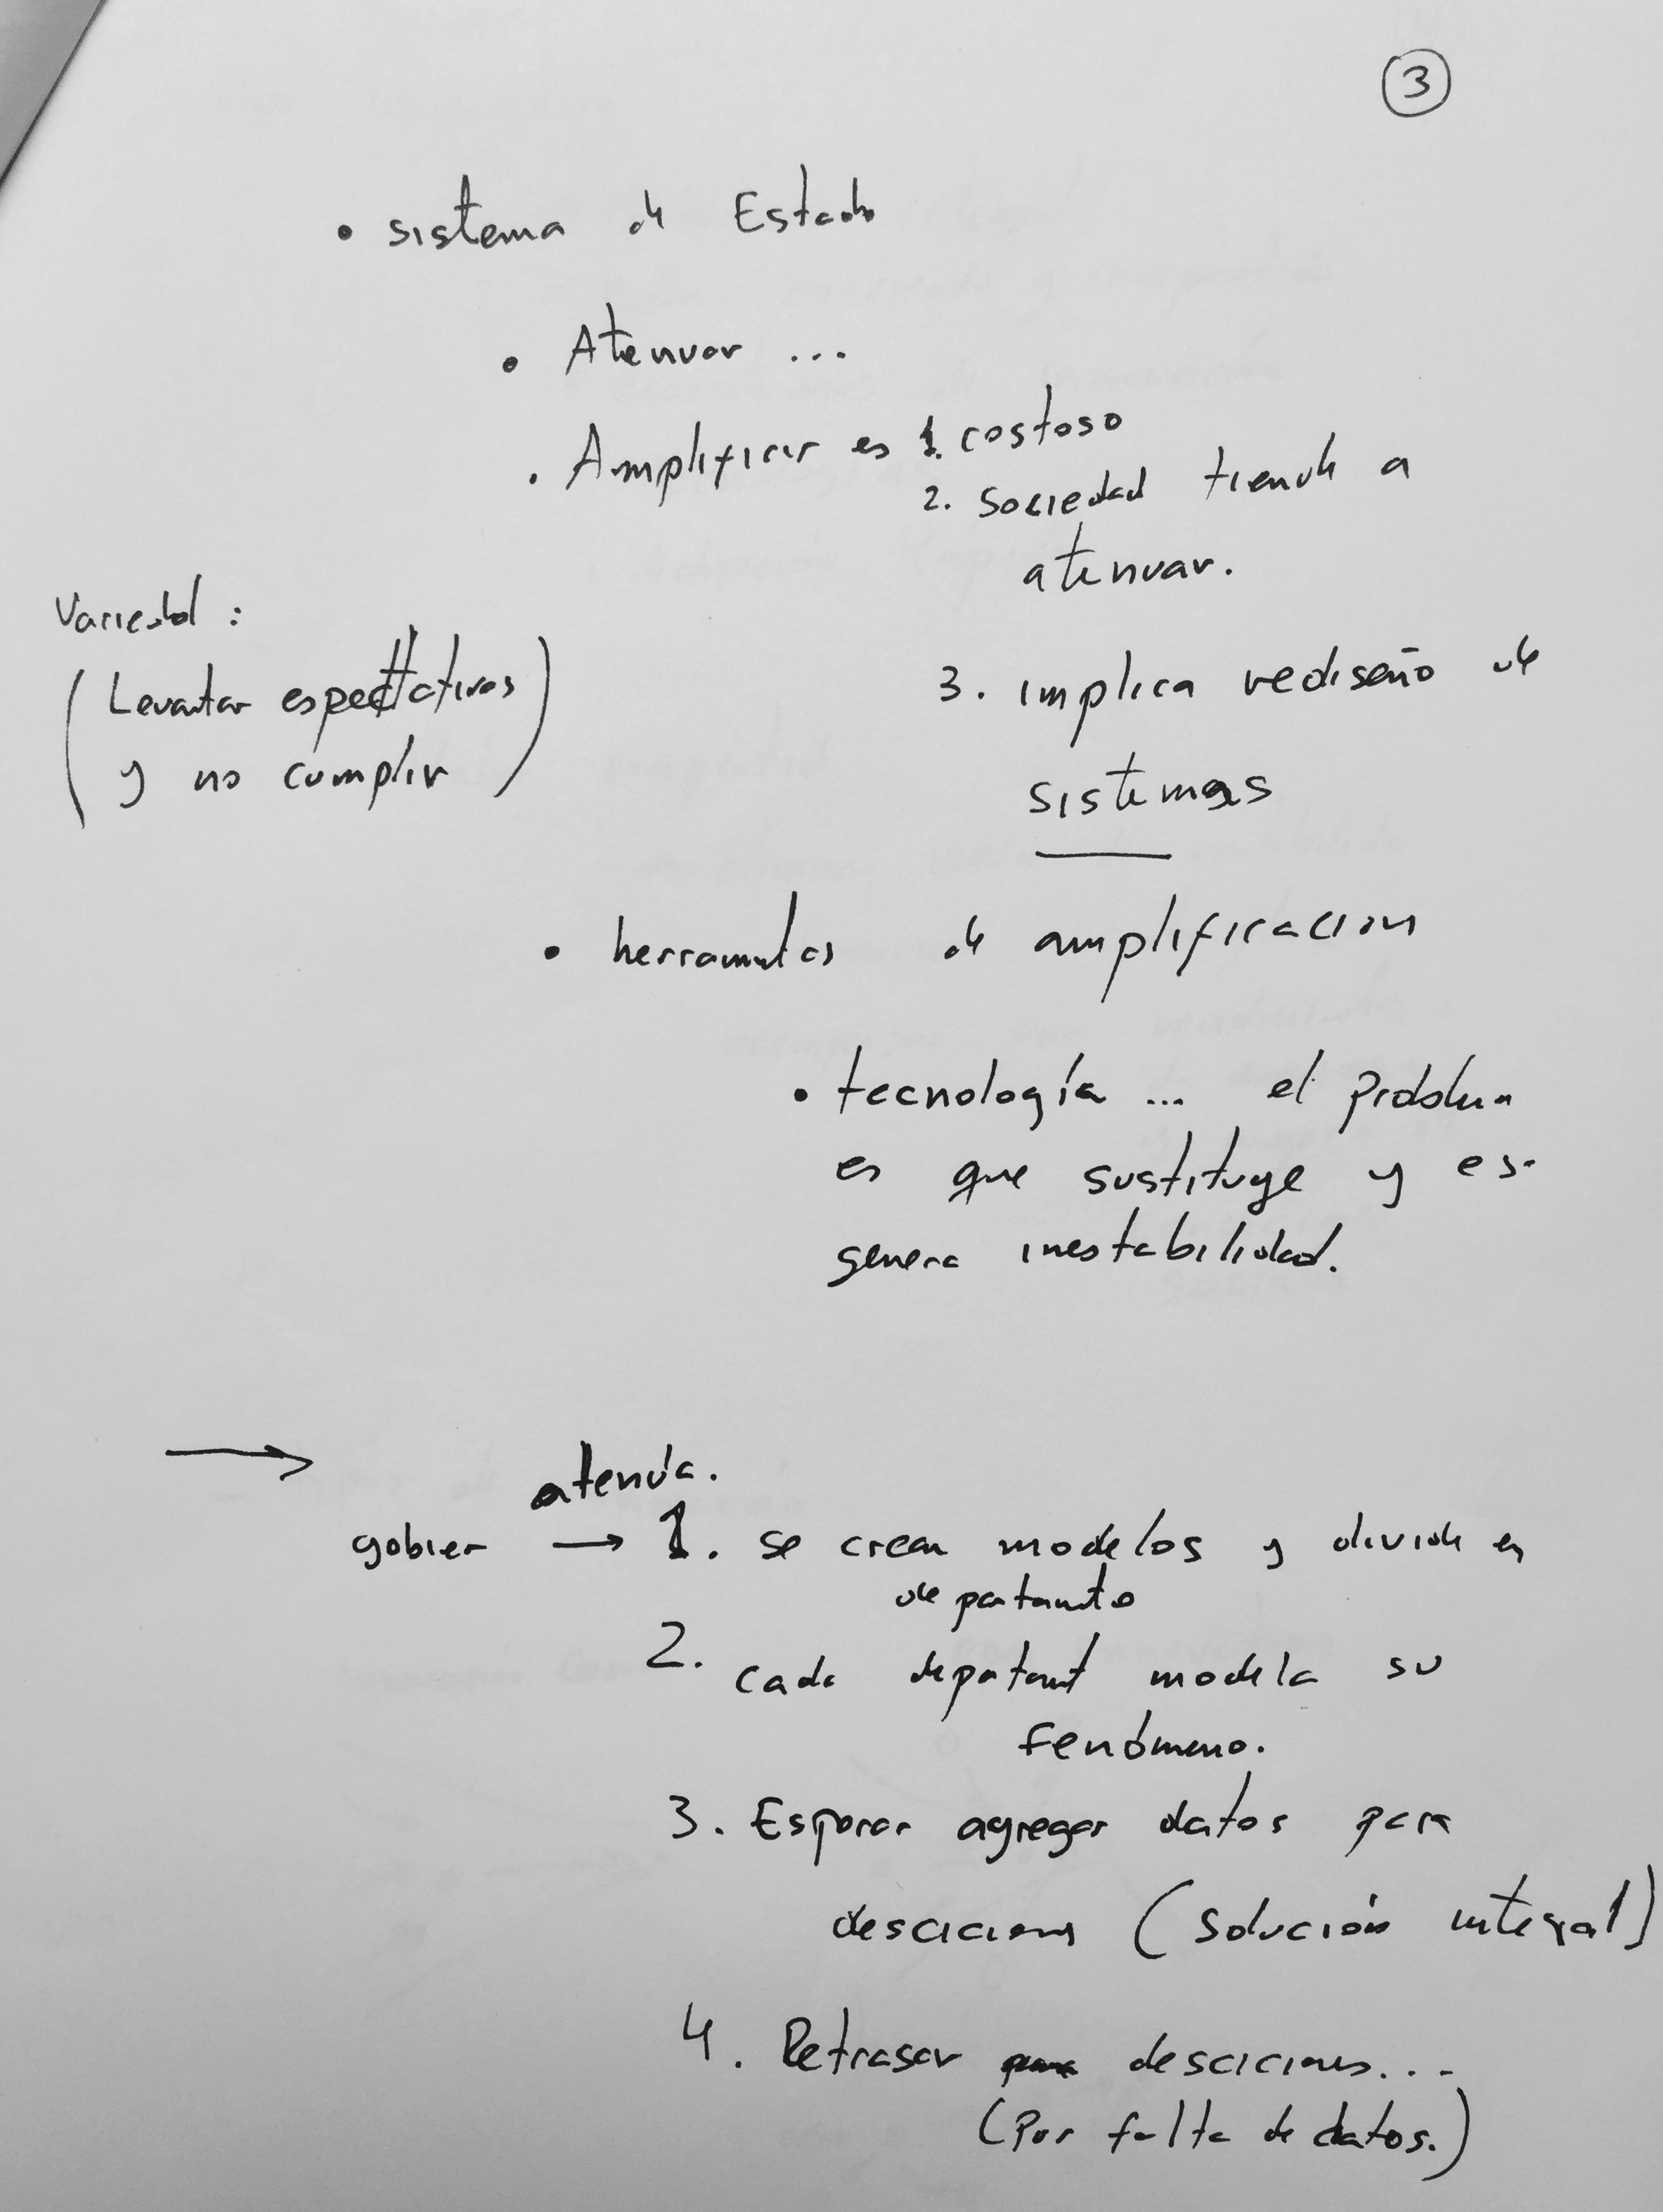 3
• sistema de Estado
• Atenuar ...
• Amplificar es 1. costoso
2. Sociedad tiende a
atenuar.
Variedad :
(Levantar espectativas
y no cumplir)
3. implica rediseño de
sistemas
• herramientas de amplificacion
• tecnología ... el problema
es que sustituye y es
genera inestabilidad.
→
atenúa.
gobier → 1. se crean modelos y divide en
departamento
2. cada departamt modela su
fenómeno.
3. Esperar agregar datos para
descicions (solución integral)
4. Retrasar desciciones...
(Por falta de datos.)